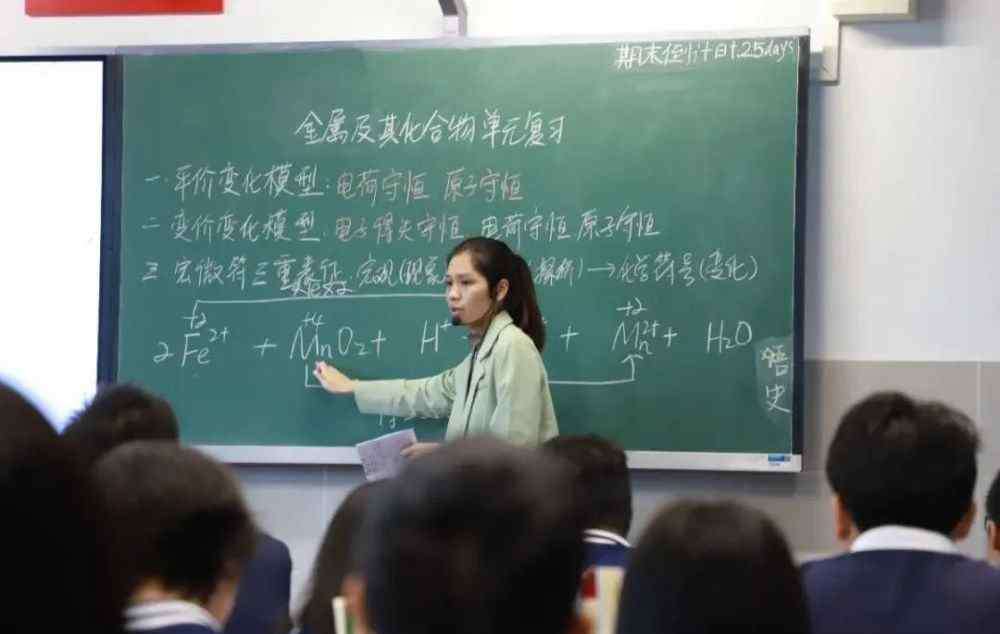 期末倒计时.25days
金属及其化合物单元复习
一.平价变化模型:电荷守恒 原子守恒
二.变价变化模型.电子得失守恒 电荷守恒 原子守恒
三 宏微符三重表征.宏观(现象 探析)→化学符号(变化)
+2 +4 +2
2Fe²⁺ + MnO₂ + H⁺ + Mn²⁺ + H₂O
悟
史